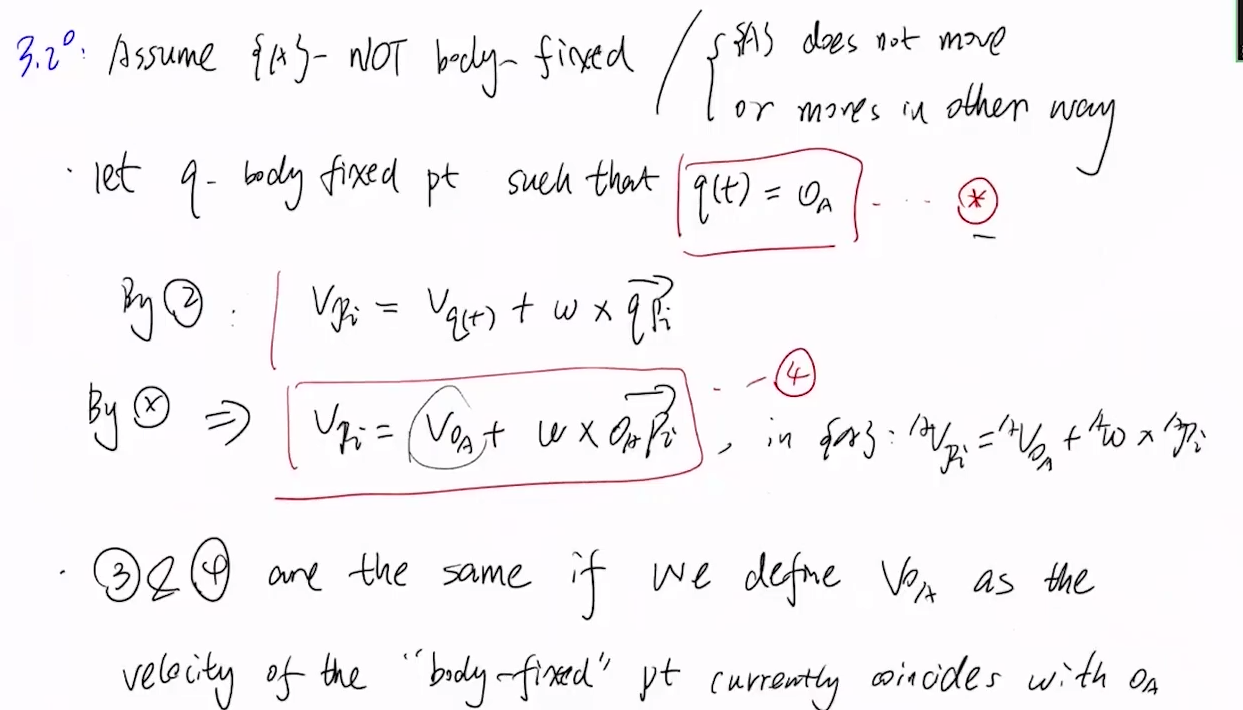 3.2°: Assume {A} - NOT body-fixed / { {A} does not move
or moves in other way
· let q - body fixed pt such that q(t) = O_A - - - (*)
By ②: V_{P_i} = V_{q(t)} + ω × \overrightarrow{qP_i}
By (*) ⇒ V_{P_i} = V_{O_A} + ω × \overrightarrow{O_A P_i} - - ④ , in {A}: ^A V_{P_i} = ^A V_{O_A} + ^A ω × ^A P_i
· ③ & ④ are the same if we define V_{O_A} as the
velocity of the "body-fixed" pt currently coincides with O_A